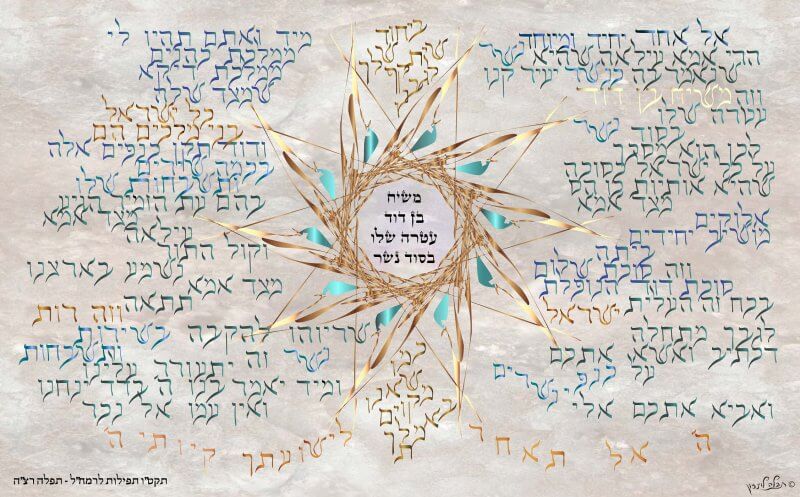 אל אחד יחיד ומיוחד
הרי אמא עילאה שהיא נשר
שנאמר בה כנשר יעיר קנו
וזה משיח בן דוד
עטרה שלו
בסוד נשר
לכן הוא מסכך
על כל ישראל לסוכה
שהיא אותיות הם
מצד אמא
אלוקים
מושיב יחידים
ביתה
וזה סוכת שלום
סוכת דוד הנופלת
בכח זה העלית ישראל
לגבך מתחלה
דכתיב ואשא אתכם
על כנפי נשרים
ואביא אתכם אלי
מיד ואתם תהיו לי
ממלכת כהנים
ממלכת דיקא
מצד שלה
כל ישראל
בני מלכים הם
ודוד תקן כנפים אלה
בכמה שירים
ותשבחות שלו
בהם עת הזמיר הגיע
מצד אמא
עילאה
וקול התור
נשמע בארצנו
מצד אמא
תתאה
וזה רות
שריוהו להקבה בשירות
ותשבחות
נשר זה יתעורר עלינו
ומיד יאמר בנו ה' בדד ינחנו
ואין עמו אל נכר
ביחוד
שלך
משיח
בן דוד
עטרה שלו
בסוד נשר
כמו
שאנו
מקוים
ה' אל תאחר לישועתך קיותי ה'
תקט"ו תפילות לרמח"ל - תפלה רצ"ה